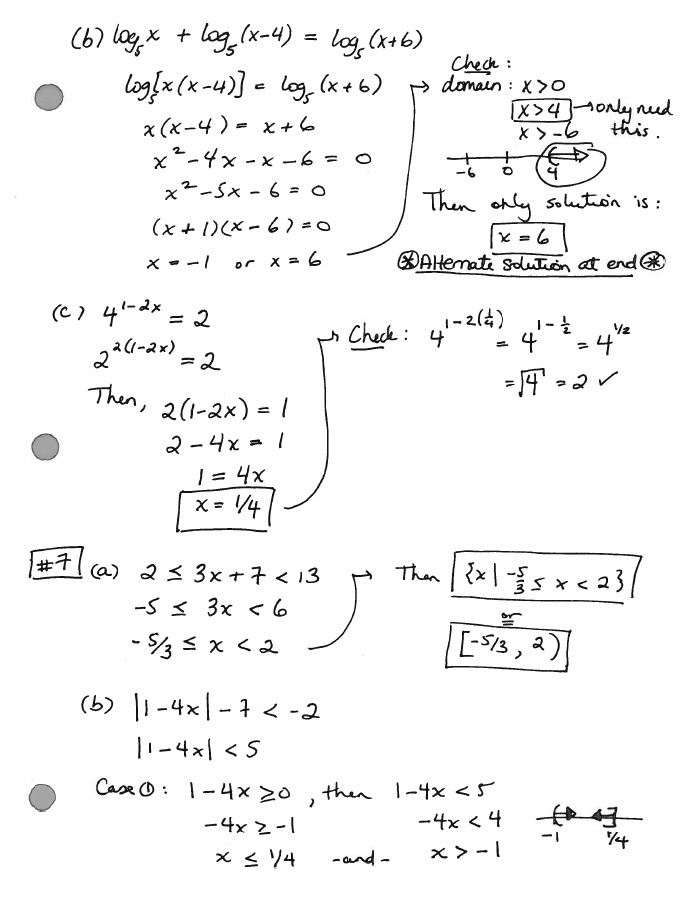 (b) log₅x + log₅(x-4) = log₅(x+6)
log₅[x(x-4)] = log₅(x+6)
x(x-4) = x+6
x² -4x -x -6 = 0
x² -5x -6 = 0
(x+1)(x-6) = 0
x = -1 or x = 6
Check:
domain: x>0
x>4 → only need this.
x>-6
-6 0 4
Then only solution is:
x = 6
⊛ Alternate solution at end ⊛
(c) 4^(1-2x) = 2
2^(2(1-2x)) = 2
Then, 2(1-2x) = 1
2 - 4x = 1
1 = 4x
x = 1/4
Check: 4^(1-2(1/4)) = 4^(1-1/2) = 4^(1/2)
= √4 = 2 ✓
#7 (a) 2 ≤ 3x+7 < 13
-5 ≤ 3x < 6
-5/3 ≤ x < 2
Then {x | -5/3 ≤ x < 2}
or
[-5/3, 2)
(b) |1-4x| - 7 < -2
|1-4x| < 5
Case ①: 1-4x ≥ 0, then 1-4x < 5
-4x ≥ -1 -4x < 4
x ≤ 1/4 -and- x > -1
-1 1/4